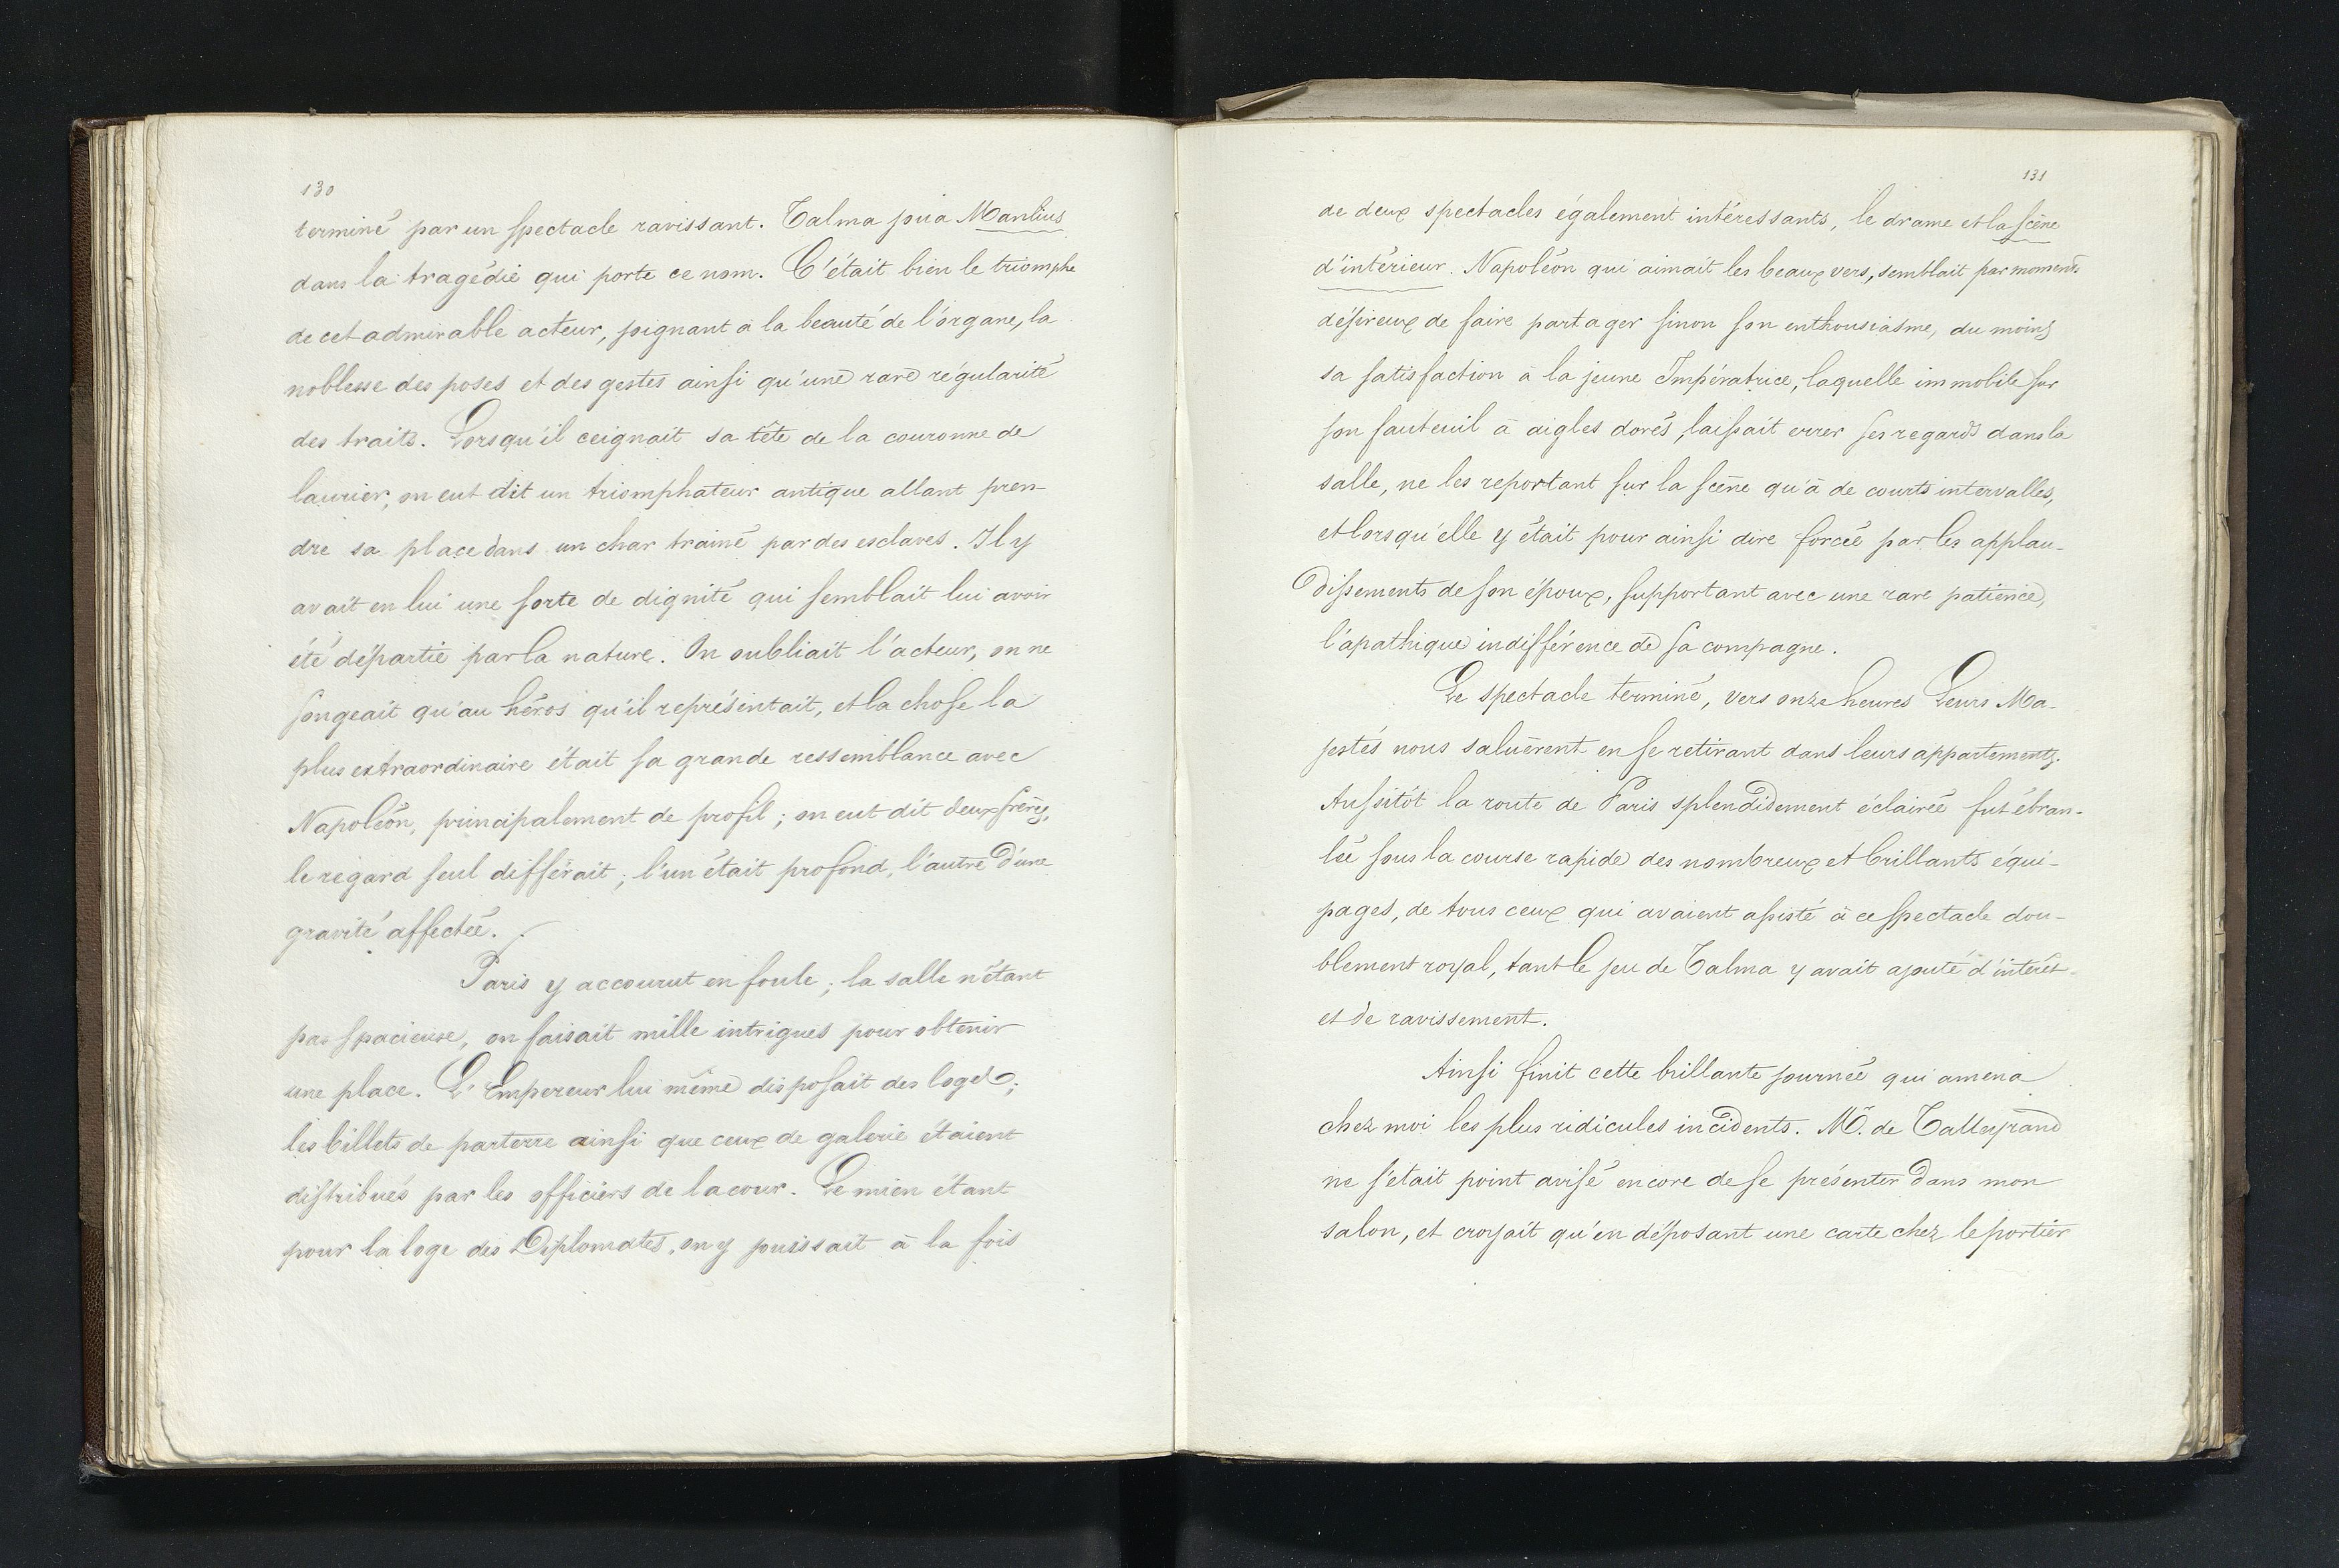 130
terminé par un spectacle ravissant. Talma joua Manlius
dans la tragédie qui porte ce nom. C'était bien le triomphe
de cet admirable acteur, joignant à la beauté de l'organe, la
noblesse des poses et des gestes ainsi qu'une rare régularité
des traits. Lorsqu'il ceignait sa tête de la couronne de
laurier, on eut dit un triomphateur antique allant pren-
dre sa place dans un char trainé par des esclaves. Il y
avait en lui une sorte de dignité qui semblait lui avoir
été départie par la nature. On oubliait l'acteur, on ne
songeait qu'au héros qu'il représentait, et la chose la
plus extraordinaire était sa grande ressemblance avec
Napoléon, principalement de profil ; on eut dit deux frères,
le regard seul différait ; l'un était profond, l'autre d'une
gravité affectée.
Paris y accourut en foule ; la salle n'étant
pas spacieuse, on faisait mille intrigues pour obtenir
une place. L'Empereur lui même disposait des loges ;
les billets de parterre ainsi que ceux de galerie étaient
distribués par les officiers de la cour. Le mien étant
pour la loge des Diplomates, on y jouissait à la fois
131
de deux spectacles également intéressants, le drame et la scène
d'intérieur. Napoléon qui aimait les beaux vers, semblait par moments
désireux de faire partager sinon son enthousiasme, du moins
sa satisfaction à la jeune Impératrice, laquelle immobile sur
son fauteuil à aigles dorés, laissait errer ses regards dans la
salle, ne les reportant sur la scène qu'à de courts intervalles,
et lorsqu'elle y était pour ainsi dire forcée par les applau-
dissements de son époux, supportant avec une rare patience,
l'apathique indifférence de sa compagne.
Le spectacle terminé, vers onze heures Leurs Ma-
jestés nous saluèrent en se retirant dans leurs appartements.
Aussitôt la route de Paris splendidement éclairée fut ébran-
lée sous la course rapide des nombreux et brillants équi-
pages, de tous ceux qui avaient assisté à ce spectacle dou-
blement royal, tant le jeu de Talma y avait ajouté d'intérêt
et de ravissement.
Ainsi finit cette brillante journée qui amena
chez moi les plus ridicules incidents. Mr. de Talleyrand
ne s'était point avisé encore de se présenter dans mon
salon, et croyait qu'en déposant une carte chez le portier